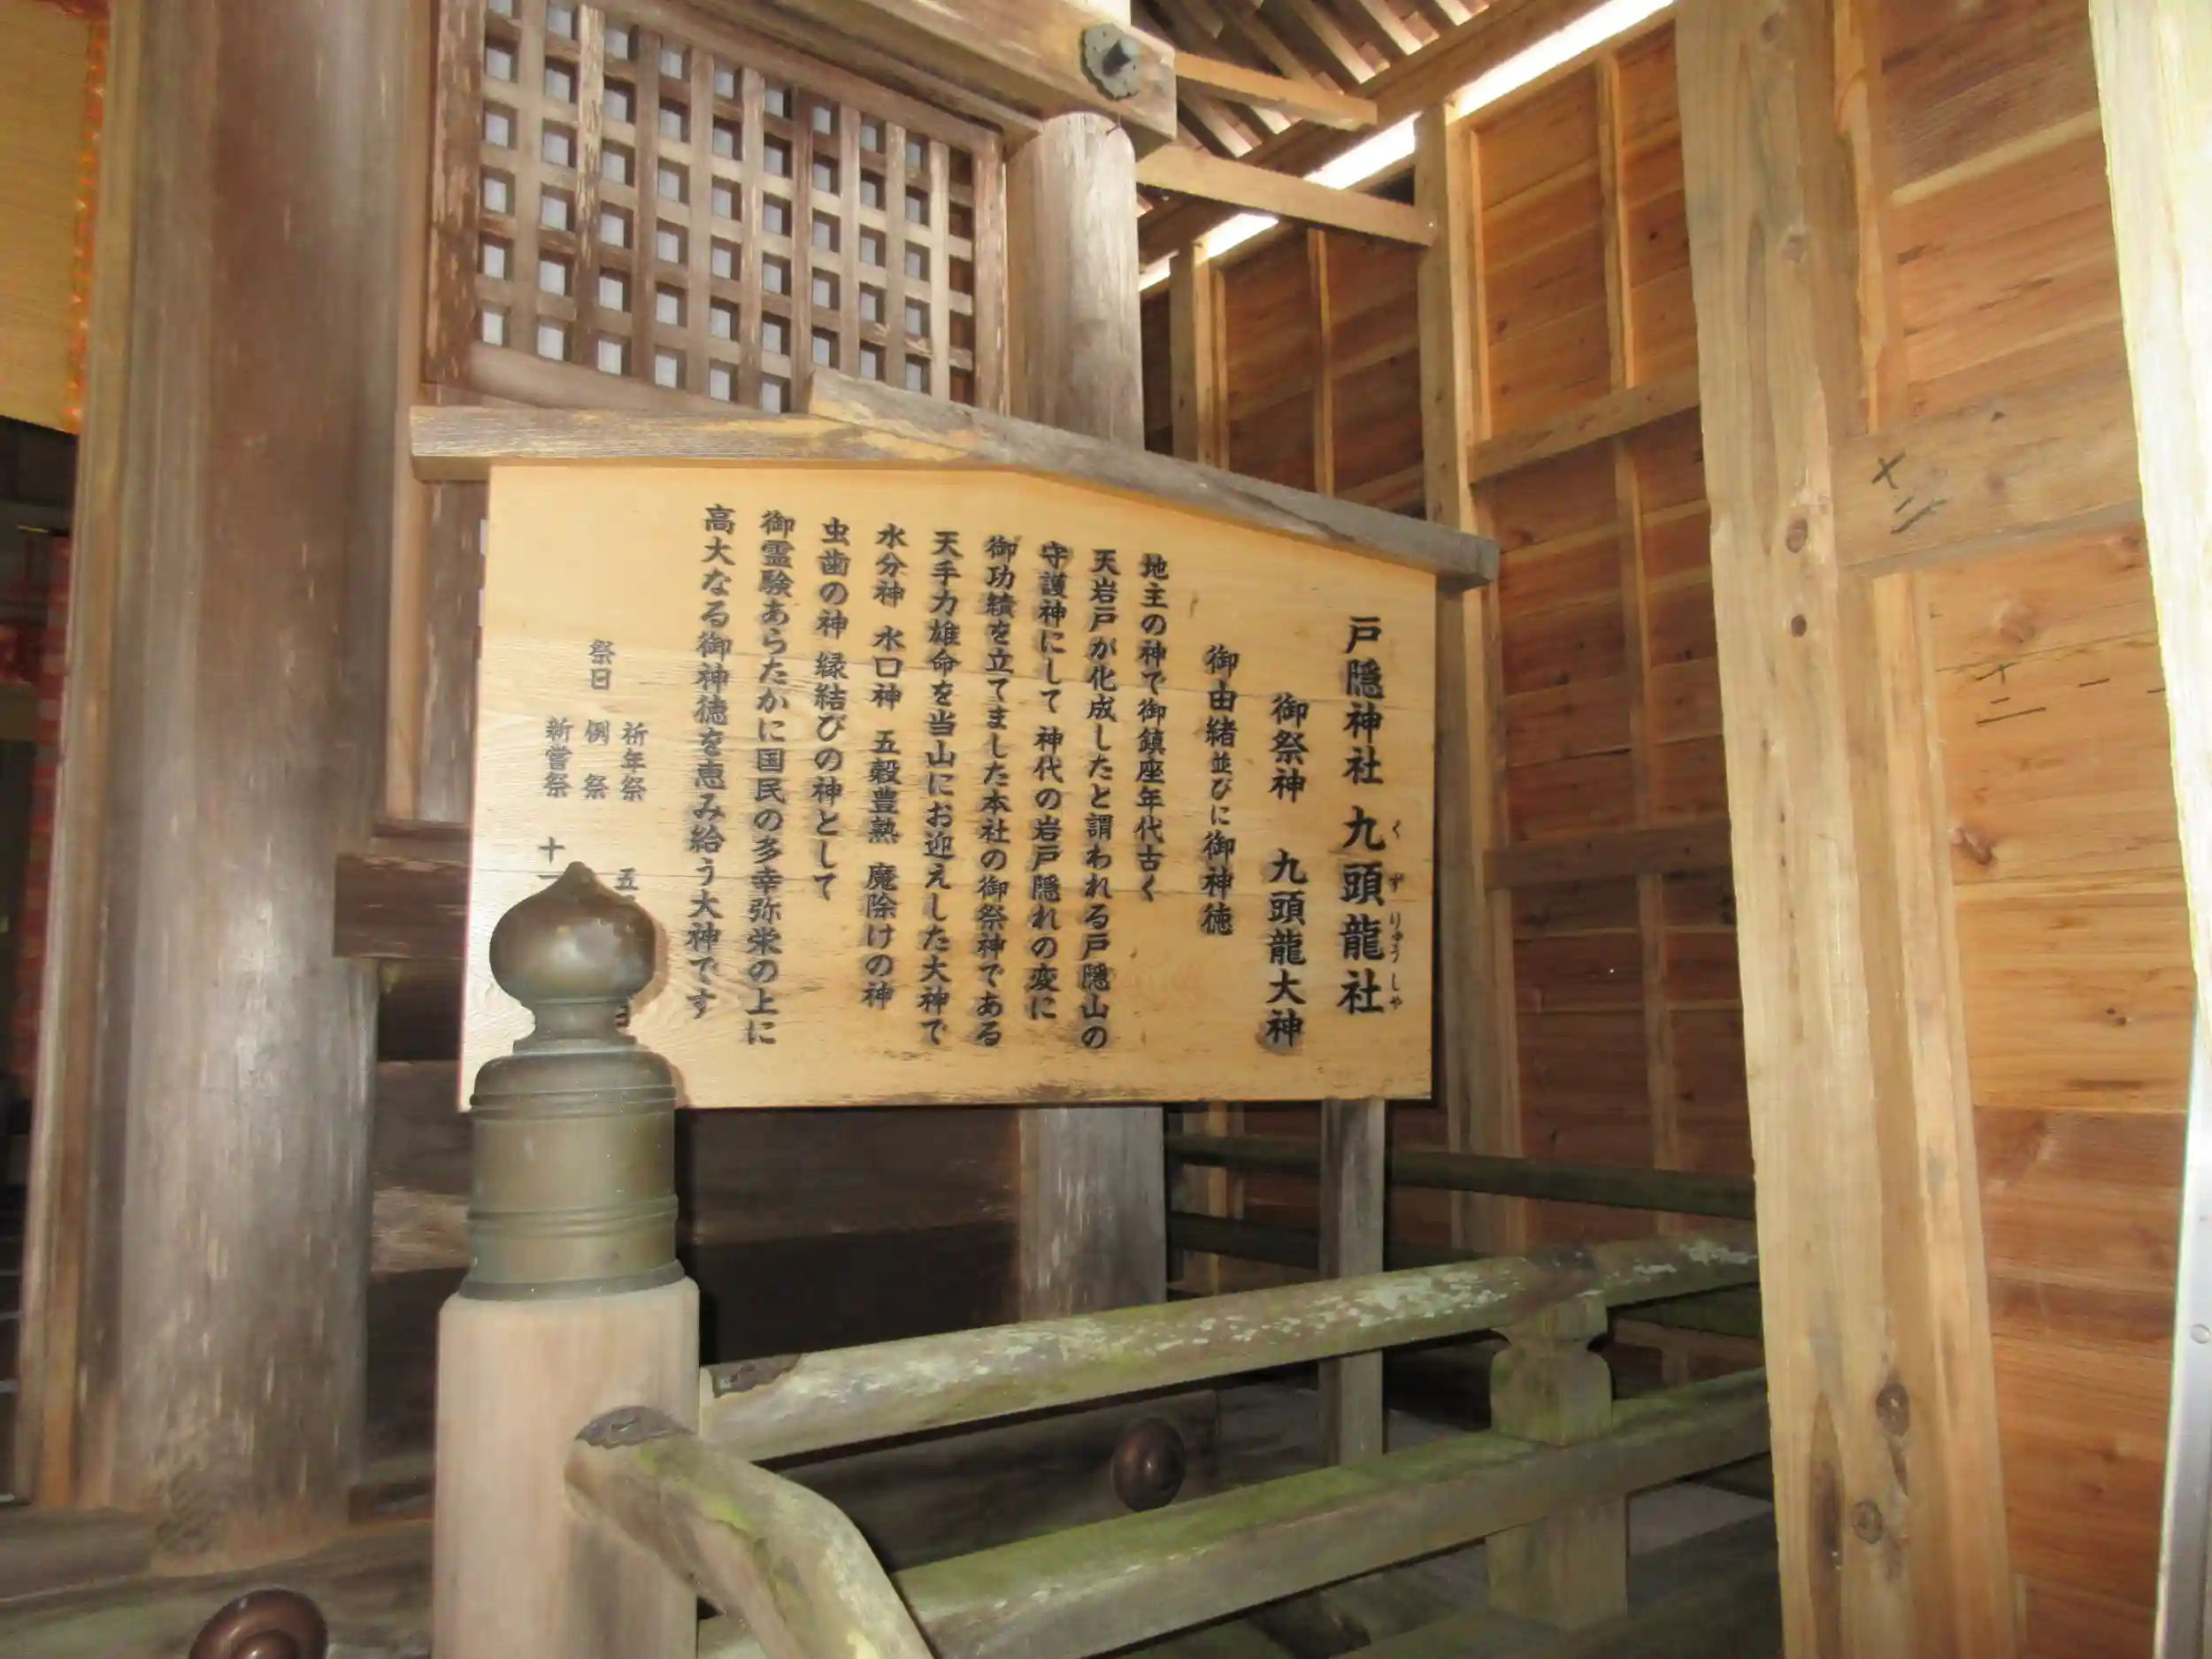 戸隠神社 九頭龍社
くずりゅうしゃ
御祭神 九頭龍大神
御由緒並びに御神徳
地主の神で御鎮座年代古く
天岩戸が化成したと謂われる戸隠山の
守護神にして 神代の岩戸隠れの変に
御功績を立てました本社の御祭神である
天手力雄命を当山にお迎えした大神で
水分神 水口神 五穀豊熟 魔除けの神
虫歯の神 縁結びの神として
御霊験あらたかに国民の多幸弥栄の上に
高大なる御神徳を恵み給う大神です
祭日
祈年祭 五
例祭
新嘗祭 十一
十二
十二